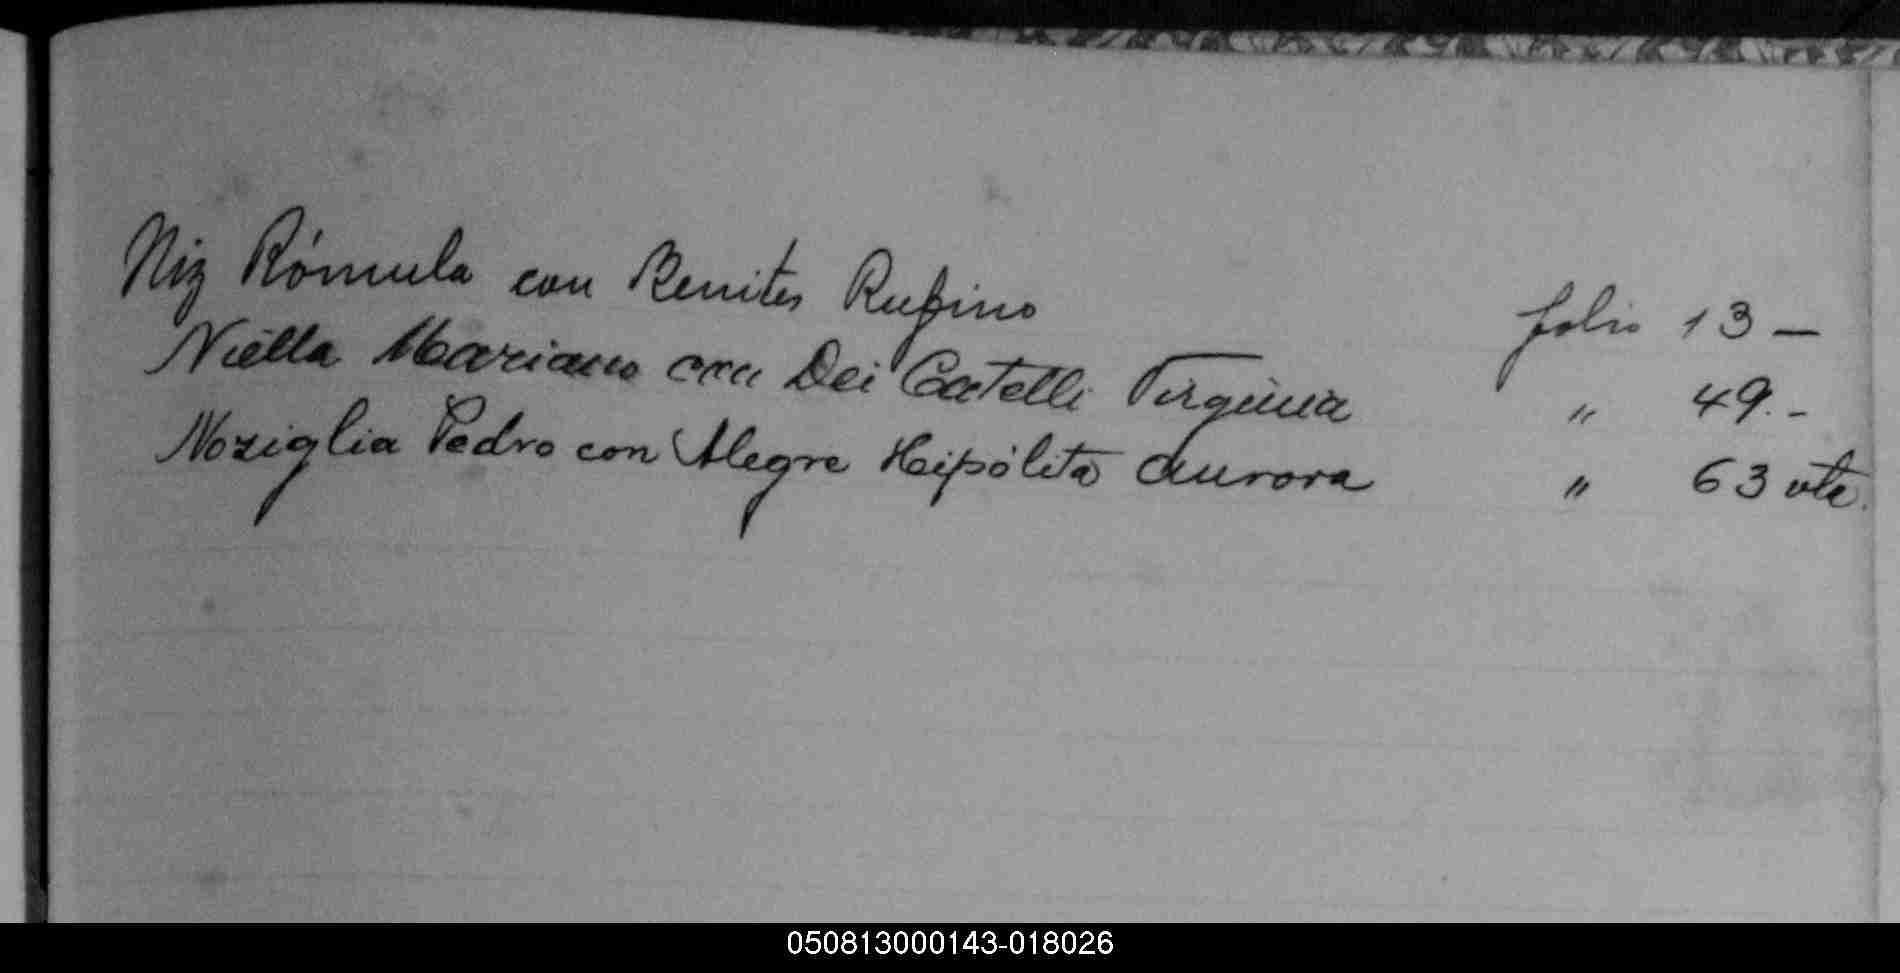 Niz Rómula con Benites Rufino folio 13 —
Niella Mariano con Dei Catelli Virginia " 49. -
Noziglia Pedro con Alegre Hipólita Aurora " 63 vta.
050813000143-018026